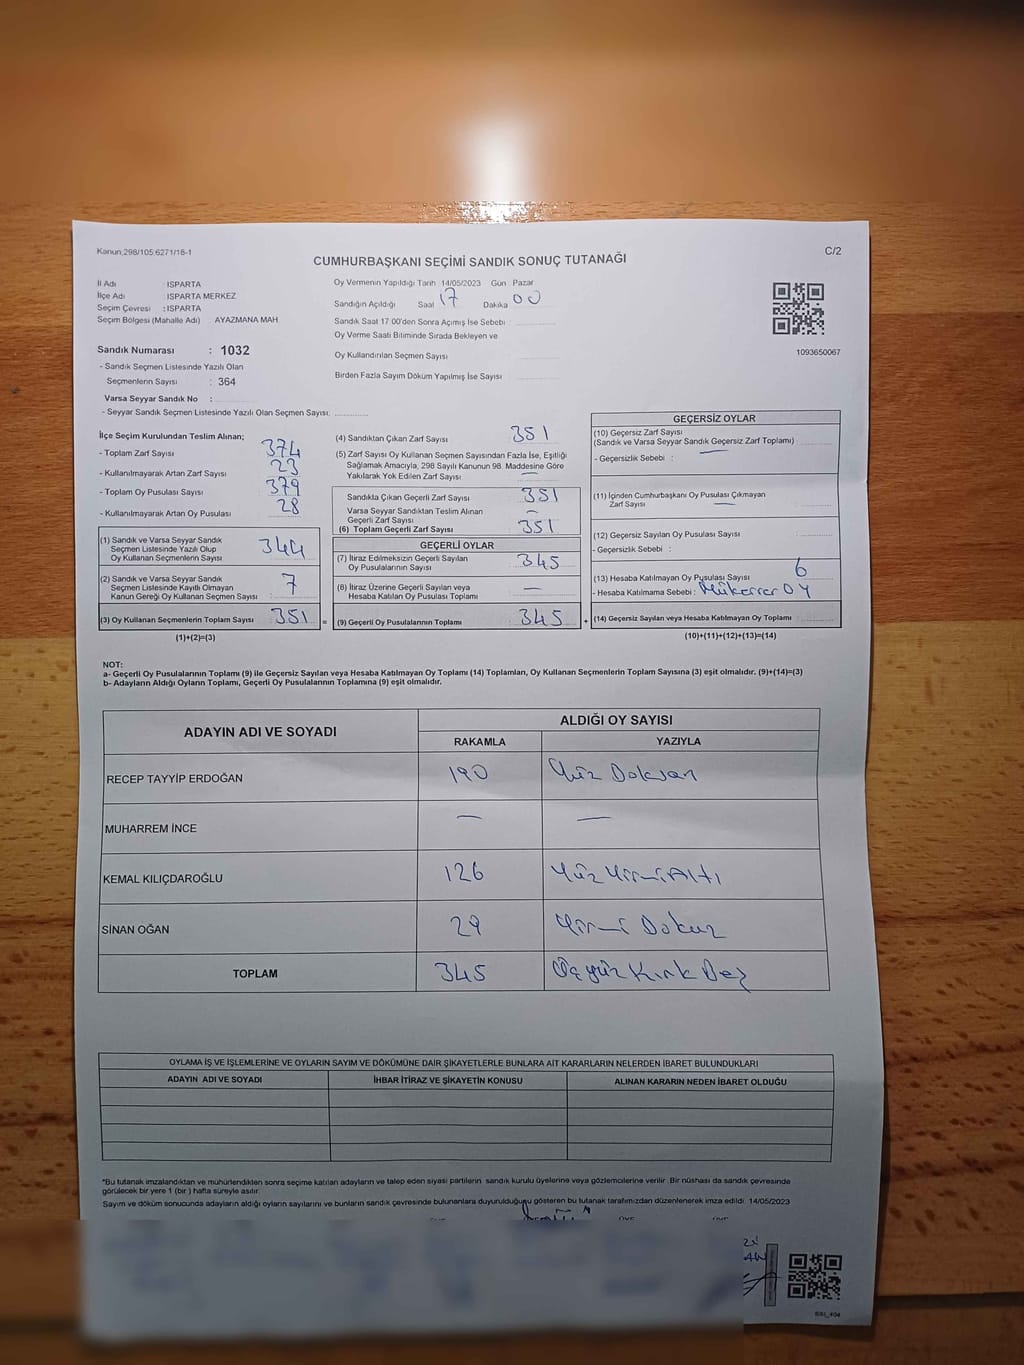 Kanun,298/105;6271/18-1
C/2
CUMHURBAŞKANI SEÇİMİ SANDIK SONUÇ TUTANAĞI
İl Adı : ISPARTA
İlçe Adı : ISPARTA MERKEZ
Seçim Çevresi : ISPARTA
Seçim Bölgesi (Mahalle Adı) : AYAZMANA MAH
Sandık Numarası : 1032
- Sandık Seçmen Listesinde Yazılı Olan
Seçmenlerin Sayısı : 364
Varsa Seyyar Sandık No :
- Seyyar Sandık Seçmen Listesinde Yazılı Olan Seçmen Sayısı:
Oy Vermenin Yapıldığı Tarih 14/05/2023 Gün Pazar
Sandığın Açıldığı Saat 17 Dakika 00
Sandık Saat 17:00'den Sonra Açımış İse Sebebi :
Oy Verme Saati Bitiminde Sırada Bekleyen ve
Oy Kullandırılan Seçmen Sayısı :
Birden Fazla Sayım Döküm Yapılmış İse Sayısı :
1093650067
İlçe Seçim Kurulundan Teslim Alınan;
- Toplam Zarf Sayısı : 374
- Kullanılmayarak Artan Zarf Sayısı : 23
- Toplam Oy Pusulası Sayısı : 379
- Kullanılmayarak Artan Oy Pusulası : 28
(1) Sandık ve Varsa Seyyar Sandık
Seçmen Listesinde Yazılı Olup
Oy Kullanan Seçmenlerin Sayısı : 344
(2) Sandık ve Varsa Seyyar Sandık
Seçmen Listesinde Kayıtlı Olmayan
Kanun Gereği Oy Kullanan Seçmen Sayısı : 7
(3) Oy Kullanan Seçmenlerin Toplam Sayısı : 351 =
(1)+(2)=(3)
(4) Sandıktan Çıkan Zarf Sayısı : 351
(5) Zarf Sayısı Oy Kullanan Seçmen Sayısından Fazla İse, Eşitliği
Sağlamak Amacıyla, 298 Sayılı Kanunun 98. Maddesine Göre
Yakılarak Yok Edilen Zarf Sayısı : —
Sandıkta Çıkan Geçerli Zarf Sayısı : 351
Varsa Seyyar Sandıktan Teslim Alınan
Geçerli Zarf Sayısı : —
(6) Toplam Geçerli Zarf Sayısı : 351
GEÇERLİ OYLAR
(7) İtiraz Edilmeksizin Geçerli Sayılan
Oy Pusulalarının Sayısı : 345
(8) İtiraz Üzerine Geçerli Sayılan veya
Hesaba Katılan Oy Pusulası Toplamı : —
(9) Geçerli Oy Pusulalarının Toplamı : 345 +
GEÇERSİZ OYLAR
(10) Geçersiz Zarf Sayısı
(Sandık ve Varsa Seyyar Sandık Geçersiz Zarf Toplamı) : —
- Geçersizlik Sebebi :
(11) İçinden Cumhurbaşkanı Oy Pusulası Çıkmayan
Zarf Sayısı : —
(12) Geçersiz Sayılan Oy Pusulası Sayısı :
- Geçersizlik Sebebi :
(13) Hesaba Katılmayan Oy Pusulası Sayısı : 6
- Hesaba Katılmama Sebebi : Mükerrer OY
(14) Geçersiz Sayılan veya Hesaba Katılmayan Oy Toplamı :
(10)+(11)+(12)+(13)=(14)
NOT:
a- Geçerli Oy Pusulalarının Toplamı (9) ile Geçersiz Sayılan veya Hesaba Katılmayan Oy Toplamı (14) Toplamları, Oy Kullanan Seçmenlerin Toplam Sayısına (3) eşit olmalıdır. (9)+(14)=(3)
b- Adayların Aldığı Oyların Toplamı, Geçerli Oy Pusulalarının Toplamına (9) eşit olmalıdır.
ADAYIN ADI VE SOYADI
ALDIĞI OY SAYISI
RAKAMLA YAZIYLA
RECEP TAYYİP ERDOĞAN 190 Yüz Doksan
MUHARREM İNCE — —
KEMAL KILIÇDAROĞLU 126 Yüz Yirmi Altı
SİNAN OĞAN 29 Yirmi Dokuz
TOPLAM 345 Üçyüz Kırk Beş
OYLAMA İŞ VE İŞLEMLERİNE VE OYLARIN SAYIM VE DÖKÜMÜNE DAİR ŞİKAYETLERLE BUNLARA AİT KARARLARIN NELERDEN İBARET BULUNDUKLARI
ADAYIN ADI VE SOYADI İHBAR İTİRAZ VE ŞİKAYETİN KONUSU ALINAN KARARIN NEDEN İBARET OLDUĞU
*Bu tutanak imzalandıktan ve mühürlendikten sonra seçime katılan adayların ve talep eden siyasi partilerin sandık kurulu üyelerine veya gözlemcilerine verilir. Bir nüshası da sandık çevresinde
görülecek bir yere 1 (bir) hafta süreyle asılır.
Sayım ve döküm sonucunda adayların aldığı oyların sayılarını ve bunların sandık çevresinde bulunanlara duyurulduğunu gösteren bu tutanak tarafımızdan düzenlenerek imza edildi. 14/05/2023